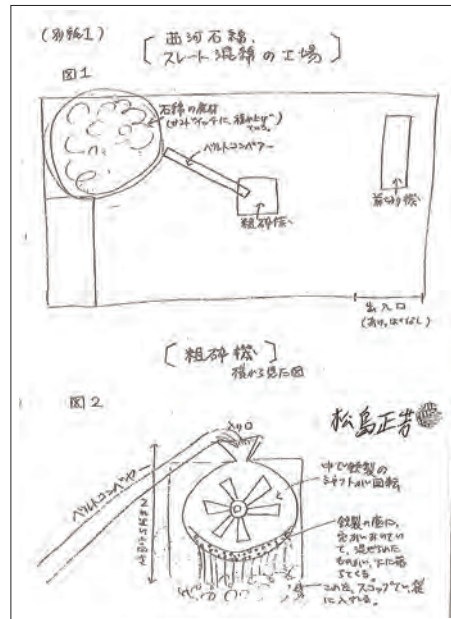 (別紙1)
[西河石綿、
スレート混綿の工場]
図1
石綿の廃材
ベルトコンベアー
粗砕機
出入口
(あけっぱなし)
[粗砕機]
横から見た図
図2
松島正芳
入口
ベルトコンベアー
中で鉄製の
シャフトが回転
鉄製の底に、
穴があいていて、混ぜられた
ものが、下に落
ちてくる。
これを、スコップで、袋
に入れる。